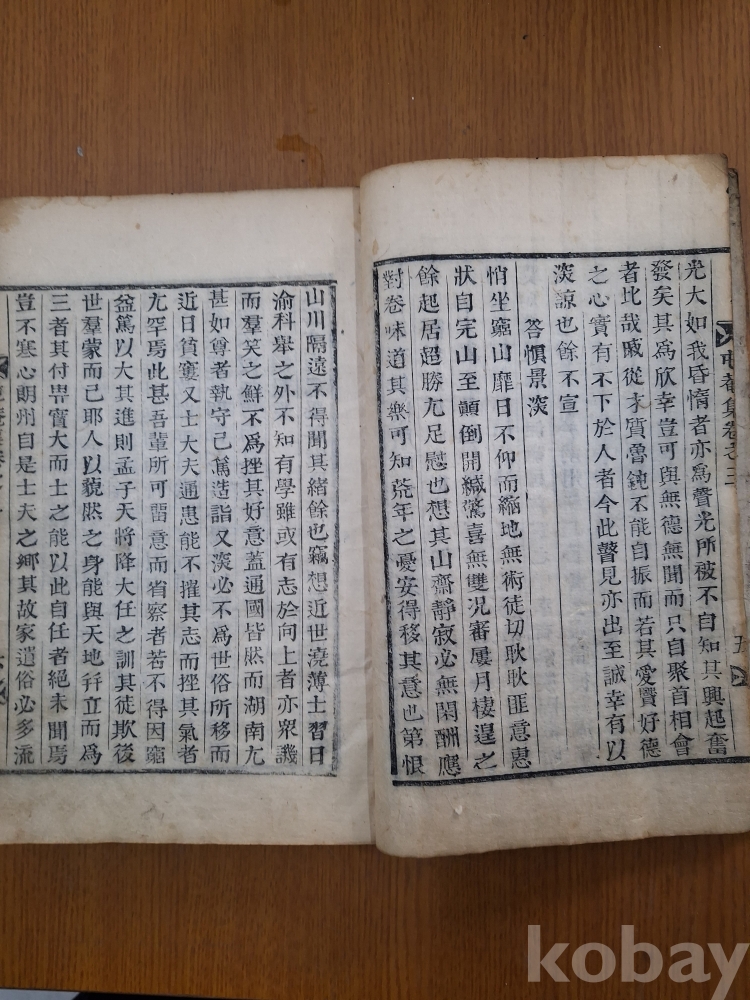 光大如我昏惰者亦為瞽光所被不自知其興起奮
發矣其為欣幸豈可與無德無聞而只自聚首相會
者比哉戚從才質魯鈍不能自振而若其愛賢好德
之心實有不下於人者今此瞽見亦出至誠幸有以
淡諒也餘不宣
答愼景淡
悄坐窮山靡日不仰而縮地無術徒切耿耿匪意惠
狀自完山至顚倒開緘驚喜無雙况審屢月棲遑之
餘起居超勝尤足慰也想其山齋靜寂必無閑酬應
對卷味道其樂可知荒年之憂安得移其意也第恨
山川隔遠不得聞其緖餘也竊想近世澆薄士習日
渝科擧之外不知有學雖或有志於向上者亦衆譏
而羣笑之鮮不為挫其好意蓋通國皆然而湖南尤
甚如尊者執守己篤造詣又淡必不為世俗所移而
近日貧窶又士大夫通患能不摧其志而挫其氣者
尤罕焉此甚吾輩所可留意而省察者若不得因窮
益篤以大其進則孟子天將降大任之訓其徒欺後
世羣蒙而己耶人以藐然之身能與天地幷立而為
三者其付畀實大而士之能以此自任者絕未聞焉
豈不寒心朗州自是士夫之鄉其故家遺俗必多流
菴集卷之三
五
kobay